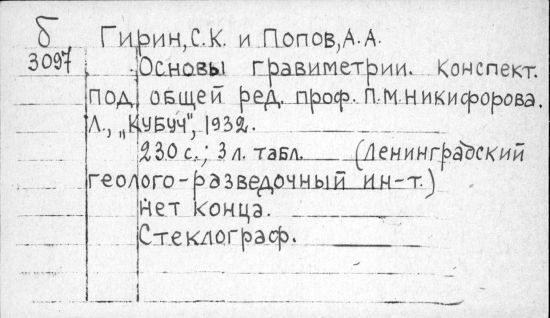 б Гирин, С.К. и Попов, А.А.
3097 Основы гравиметрии. Конспект.
под общей ред. проф. П.М. Никифорова.
Л., „КУБУЧ", 1932.
230 с.; 3 л. табл. (Ленинградский
геолого-разведочный ин-т.)
Нет конца.
Стеклограф.